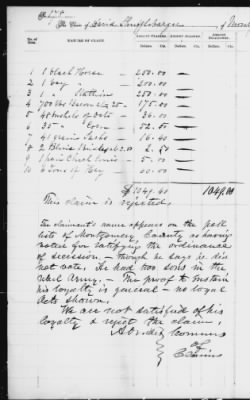 The Case of David Shufflebarger of
NATURE OF CLAIM. AMOUNT CLAIMED. AMOUNT ALLOWED. AMOUNT DISALLOWED.
Dolls. Cts. Dolls. Cts. Dolls. Cts.
1 1 black Horse — 250.00
2 1 bay " — 200.00
3 1 " Stallion — 250.00
4 700 lbs Bacon @ 25 — 175.00
5 Bushels of Oats — 36.00
6 35 " Corn — 52.50
7 41 Grain Sacks 16.40
8 2 Blind Bridles
9 1 pair Check Lines — 5.00
10 Tons of Hay
1049.40 1049.40
This claim is rejected.
The claimant's name appears on the poll
lists of Montgomery County as having
voted for ratifying the ordinance
of secession — though he says he did
not vote. He had two sons in the
Rebel Army. — The proof to sustain
his loyalty is general — no loyal
acts shown.
We are not satisfied of his
loyalty & reject the claim.
Comrs
of
Claims